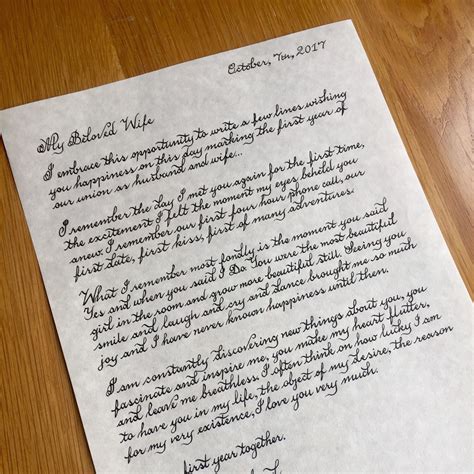 October, 7th, 2017
My Beloved Wife
I embrace this opportunity to write a few lines wishing
you happiness on this day marking the first year of
our union as husband and wife..
I remember the day I met you again for the first time,
the excitement I felt the moment my eyes beheld you
anew. I remember our first four hour phone call, our
first date, first kiss, first of many adventures.
What I remember most fondly is the moment you said
Yes and when you said I Do. You were the most beautiful
girl in the room and grow more beautiful still. Seeing you
smile and laugh and cry and dance brought me so much
joy and I have never known happiness until then.
I am constantly discovering new things about you, you
fascinate and inspire me, you make my heart flutter,
and leave me breathless. I often think on how lucky I am
to have you in my life, the object of my desire, the reason
for my very existence, I love you very much.
first year together.